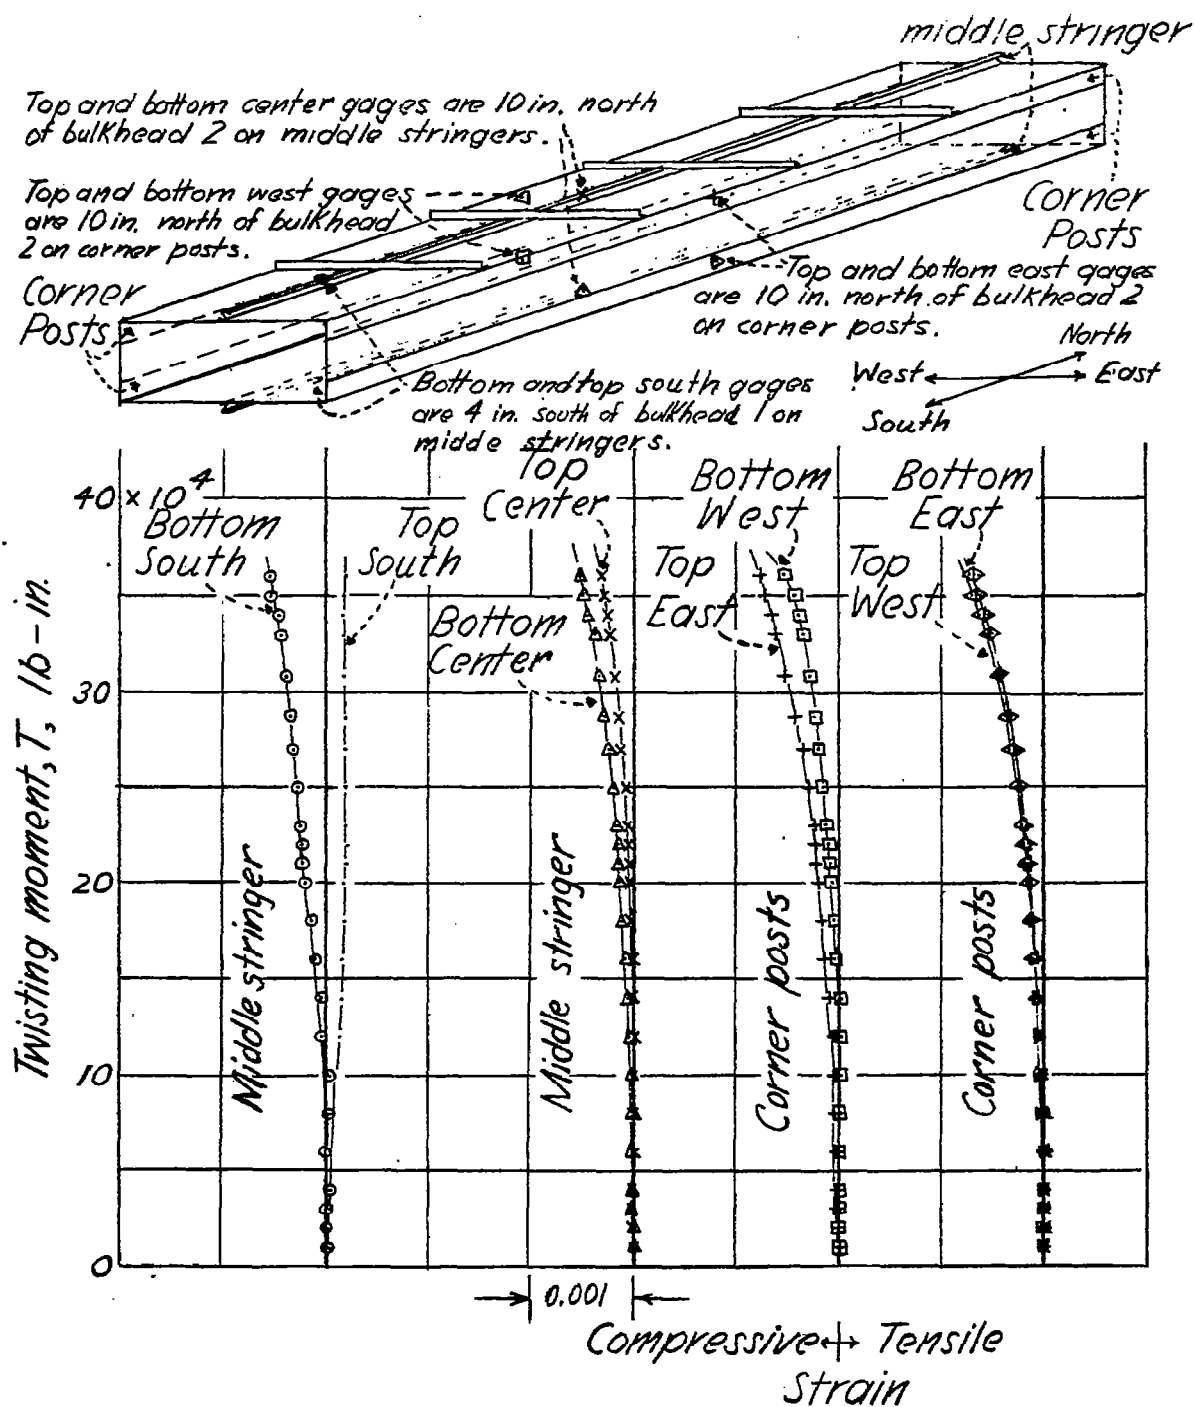 middle stringer
Top and bottom center gages are 10 in. north
of bulkhead 2 on middle stringers.
Top and bottom west gages
are 10 in. north of bulkhead
2 on corner posts.
Corner
Posts
Corner
Posts
Top and bottom east gages
are 10 in. north of bulkhead 2
on corner posts.
North
West
East
South
Bottom and top south gages
are 4 in. south of bulkhead 1 on
midde stringers.
40 × 10 4
Bottom
South
Top
South
Top
Center
Bottom
Center
Bottom
West
Top
East
Bottom
East
Top
West
30
20
10
0
Twisting moment, T, lb-in.
Middle stringer
Middle stringer
Corner posts
Corner posts
0.001
Compressive ↔ Tensile
Strain